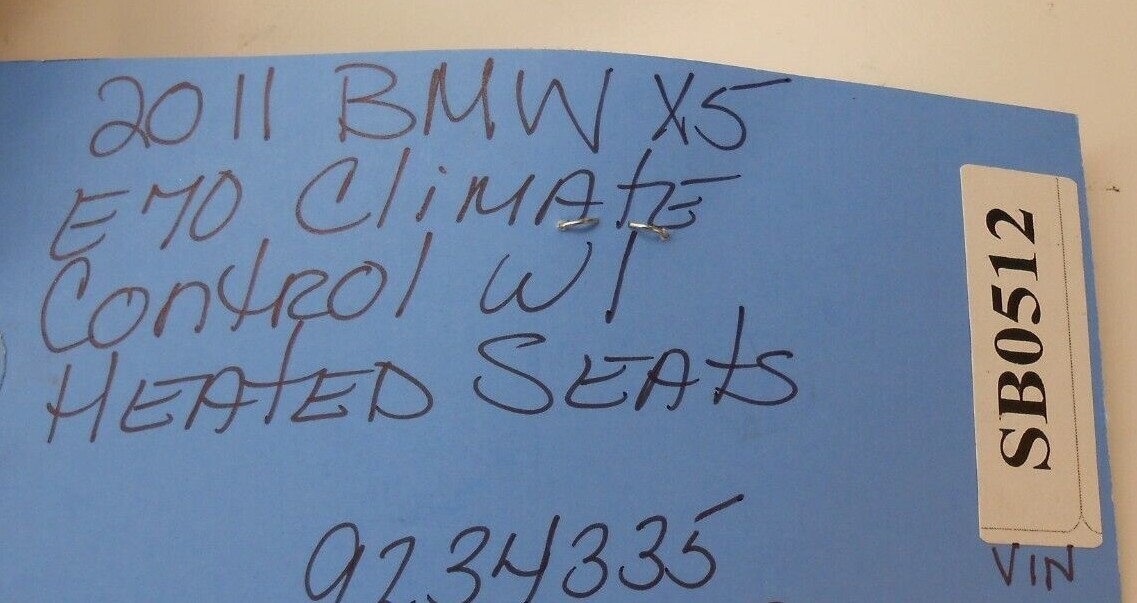 2011 BMW X5
E70 Climate
Control w/
Heated Seats
9234335
SB0512
VIN